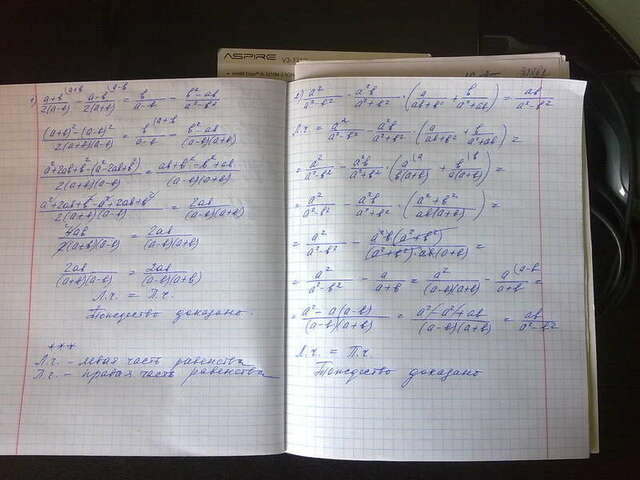 ASPIRE
1) (a+b)^(a+b / 2(a-b) - (a-b)^(a-b / 2(a+b) = b/(a-b) - (b²-ab)/(a²-b²)
((a+b)²-(a-b)²)/(2(a+b)(a-b)) = b^(a+b/(a-b) - (b²-ab)/((a-b)(a+b))
(a²+2ab+b²-(a²-2ab+b²))/(2(a+b)(a-b)) = (ab+b²-b²+ab)/((a-b)(a+b))
(a²+2ab+b²-a²+2ab+b²)/(2(a+b)(a-b)) = 2ab/((a-b)(a+b))
4ab/(2(a+b)(a-b)) = 2ab/((a-b)(a+b))
2ab/((a+b)(a-b)) = 2ab/((a-b)(a+b))
Л.ч. = П.ч.
Тождество доказано.
***
Л.ч. - левая часть равенства
П.ч. - правая часть равенства
a²/(a²-b²) - a²b/(a²+b²) · (a/(ab+b²) + b/(a²+ab)) = ab/(a²-b²)
Л.ч = a²/(a²-b²) - a²b/(a²+b²) · (a/(ab+b²) + b/(a²+ab)) =
= a²/(a²-b²) - a²b/(a²+b²) · (a^(a/(b(a+b)) + b^(b/(a(a+b))) =
= a²/(a²-b²) - a²b/(a²+b²) · ((a²+b²)/(ab(a+b))) =
= a²/(a²-b²) - a²b(a²+b²)/((a²+b²)·ab(a+b)) =
= a²/(a²-b²) - a/(a+b) = a²/((a-b)(a+b)) - a^(a-b/(a+b) =
= (a²-a(a-b))/((a-b)(a+b)) = (a²-a²+ab)/((a-b)(a+b)) = ab/(a²-b²)
Л.ч. = П.ч.
Тождество доказано